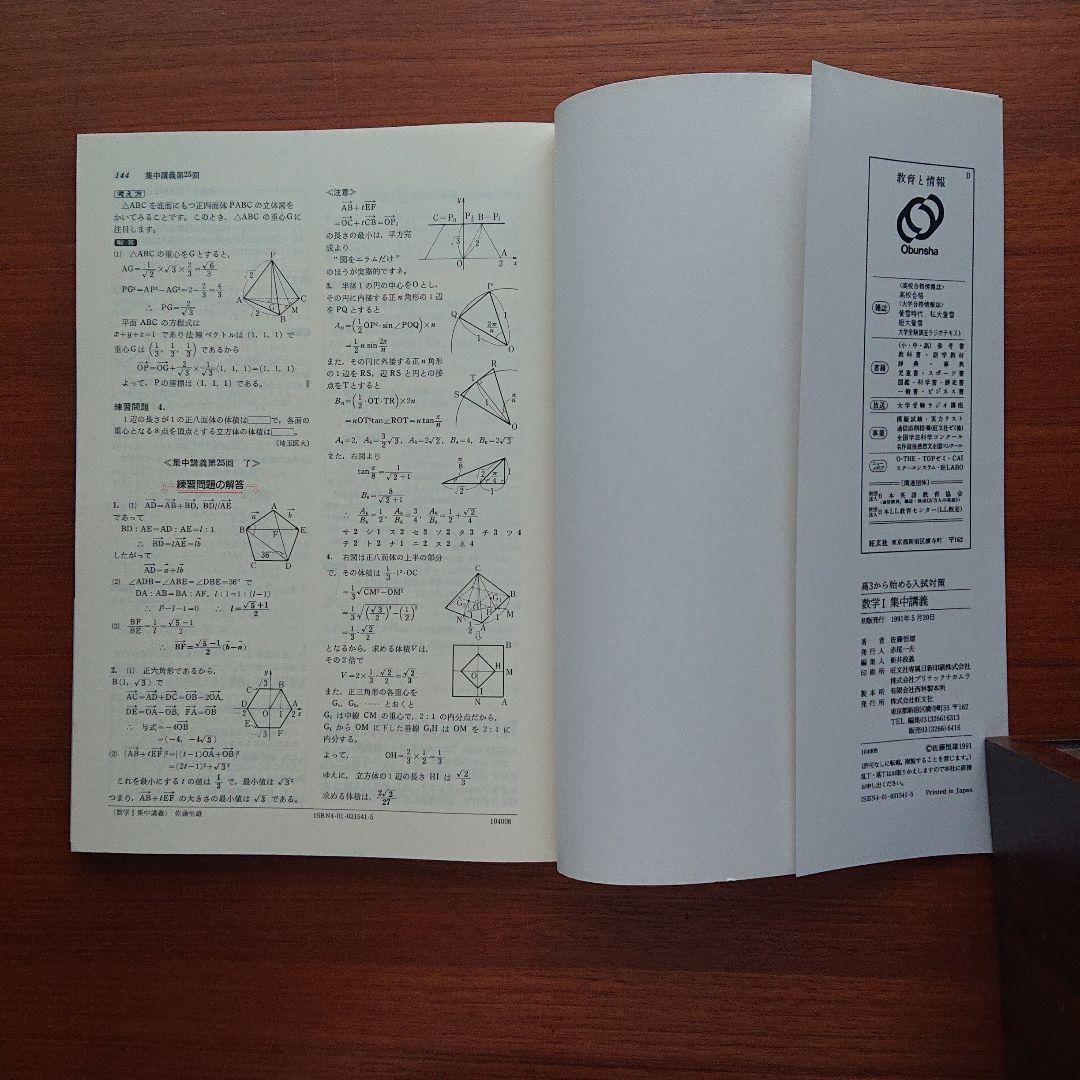 144 集中講義第25回
考え方
△ABCを底面にもつ正四面体PABCの立体図を
かいてみることです。このとき、△ABCの重心Gに
注目します。
解答
(1) △ABCの重心をGとすると、
AG=1/√2×√3×2/3=√6/3
PG²=AP²-AG²=2-2/3=4/3
∴ PG=2/√3
平面ABCの方程式は
x+y+z=1 であり法線ベクトルは(1, 1, 1)で
重心Gは(1/3, 1/3, 1/3)であるから
OP=OG+2/√3×1/√3(1, 1, 1)=(1, 1, 1)
よって、Pの座標は(1, 1, 1)である。
練習問題 4.
1辺の長さが1の正八面体の体積は□で、各面の
重心となる8点を頂点とする立方体の体積は□。
(埼玉医大)
<集中講義第25回 了>
練習問題の解答
1. (1) AD=AB+BD, BD//AE
であって
BD:AE=AD:AE=l:1
∴ BD=lAE=lb
したがって
AD=a+lb
(2) ∠ADB=∠ABE=∠DBE=36°で
DA:AB=BA:AF, l:1=1:(l-1)
∴ l²-l-1=0 ∴ l=(√5+1)/2
(3) BF/BE=1/l=(√5-1)/2
∴ BF=(√5-1)/2(b-a)
2. (1) 正六角形であるから、
B(1, √3)で
AC=AD+DC=OB-2OA,
DE=OA-OB, FA=OB
∴ 与式=-4OB
=(-4, -4√3)
(2) |AB+tEF|²=|(t-1)OA+OB|²
=(2t-1)²+√3²
これを最小にするtの値は1/2で、最小値は√3²
つまり、AB+tEFの大きさの最小値は√3である。
<注意>
AB+tEF
=OC+tCB=OPt
の長さの最小は、平方完
成より
"図をニラムだけ"
のほうが実際的ですネ。
3. 半径1の円の中心をOとし、
その円に内接する正n角形の1辺
をPQとすると
An=(1/2 OP²·sin∠POQ)×n
=1/2 n sin 2π/n
また、その円に外接する正n角形
の1辺をRS, 辺RSと円との接
点をTとすると
Bn=(1/2·OT·TR)×2n
=nOT²tan∠ROT=n tan π/n
A4=2, A6=3/2√3, A8=2√2, B4=4, B6=2√3
また、右図より
tan π/8=1/(√2+1)
B8=8/(√2+1)
∴ A4/B4=1/2, A6/B6=3/4, A8/B8=1/2+√2/4
サ2 シ1 ス2 セ3 ソ2 タ3 チ3 ツ4
テ2 ト2 ナ1 ニ2 ス2 ネ4
4. 右図は正八面体の上半の部分
で、その体積は1/3·1²·OC
=1/3√(CM²-OM²)
=1/3√((√3/2)²-(1/2)²)
=1/3·√2/2
となるから、求める体積Vは、
その2倍で
V=2×1/3·√2/2=√2/3
また、正三角形の各重心を
G1, G2, ……とおくと
G1は中線CMの重心で、2:1の内分点だから、
G1からOMに下した垂線G1HはOMを2:1に
内分する。
よって、 OH=2/3×1/2=1/3
ゆえに、立方体の1辺の長さHIは√2/3
求める体積は、2√2/27
(数学Ⅰ集中講義) 佐藤恒雄
ISBN4-01-031541-5
10400B
教育と情報
D
Obunsha
雑誌
〈高校合格情報誌〉
高校合格
〈大学合格情報誌〉
螢雪時代 私大螢雪
短大螢雪
大学受験講座ラジオテキスト
書籍
(小・中・高)参考書
教科書・語学教材
辞典・事典
児童書・スポーツ書
図鑑・科学書・歴史書
一般書・ビジネス書
放送
大学受験ラジオ講座
事業
模擬試験・実力テスト
通信添削指導(旺文社ゼミ他)
全国学芸科学コンクール
O-THE・TOPゼミ・CAI
スクールシステム・旺LABO
〈関連団体〉
財団法人 日本英語教育協会
財団法人 日本LL教育センター(LL教室)
旺文社 東京都新宿区横寺町 〒162
高3から始める入試対策
数学Ⅰ 集中講義
初版発行 1991年5月20日
著者 佐藤恒雄
発行人 赤尾一夫
編集人 新井政義
印刷所 旺文社専属日新印刷株式会社
株式会社プリテックナカムラ
製本所 有限会社西林製本所
発行所 株式会社旺文社
東京都新宿区横寺町55 〒162
TEL.編集03(3266)6313
販売03(3266)6416
10400B
©佐藤恒雄1991
(許可なしに転載、複製することを禁じます。)
乱丁・落丁はお取りかえしますので本社に直接
お申し出ください。
ISBN4-01-031541-5 Printed in Japan